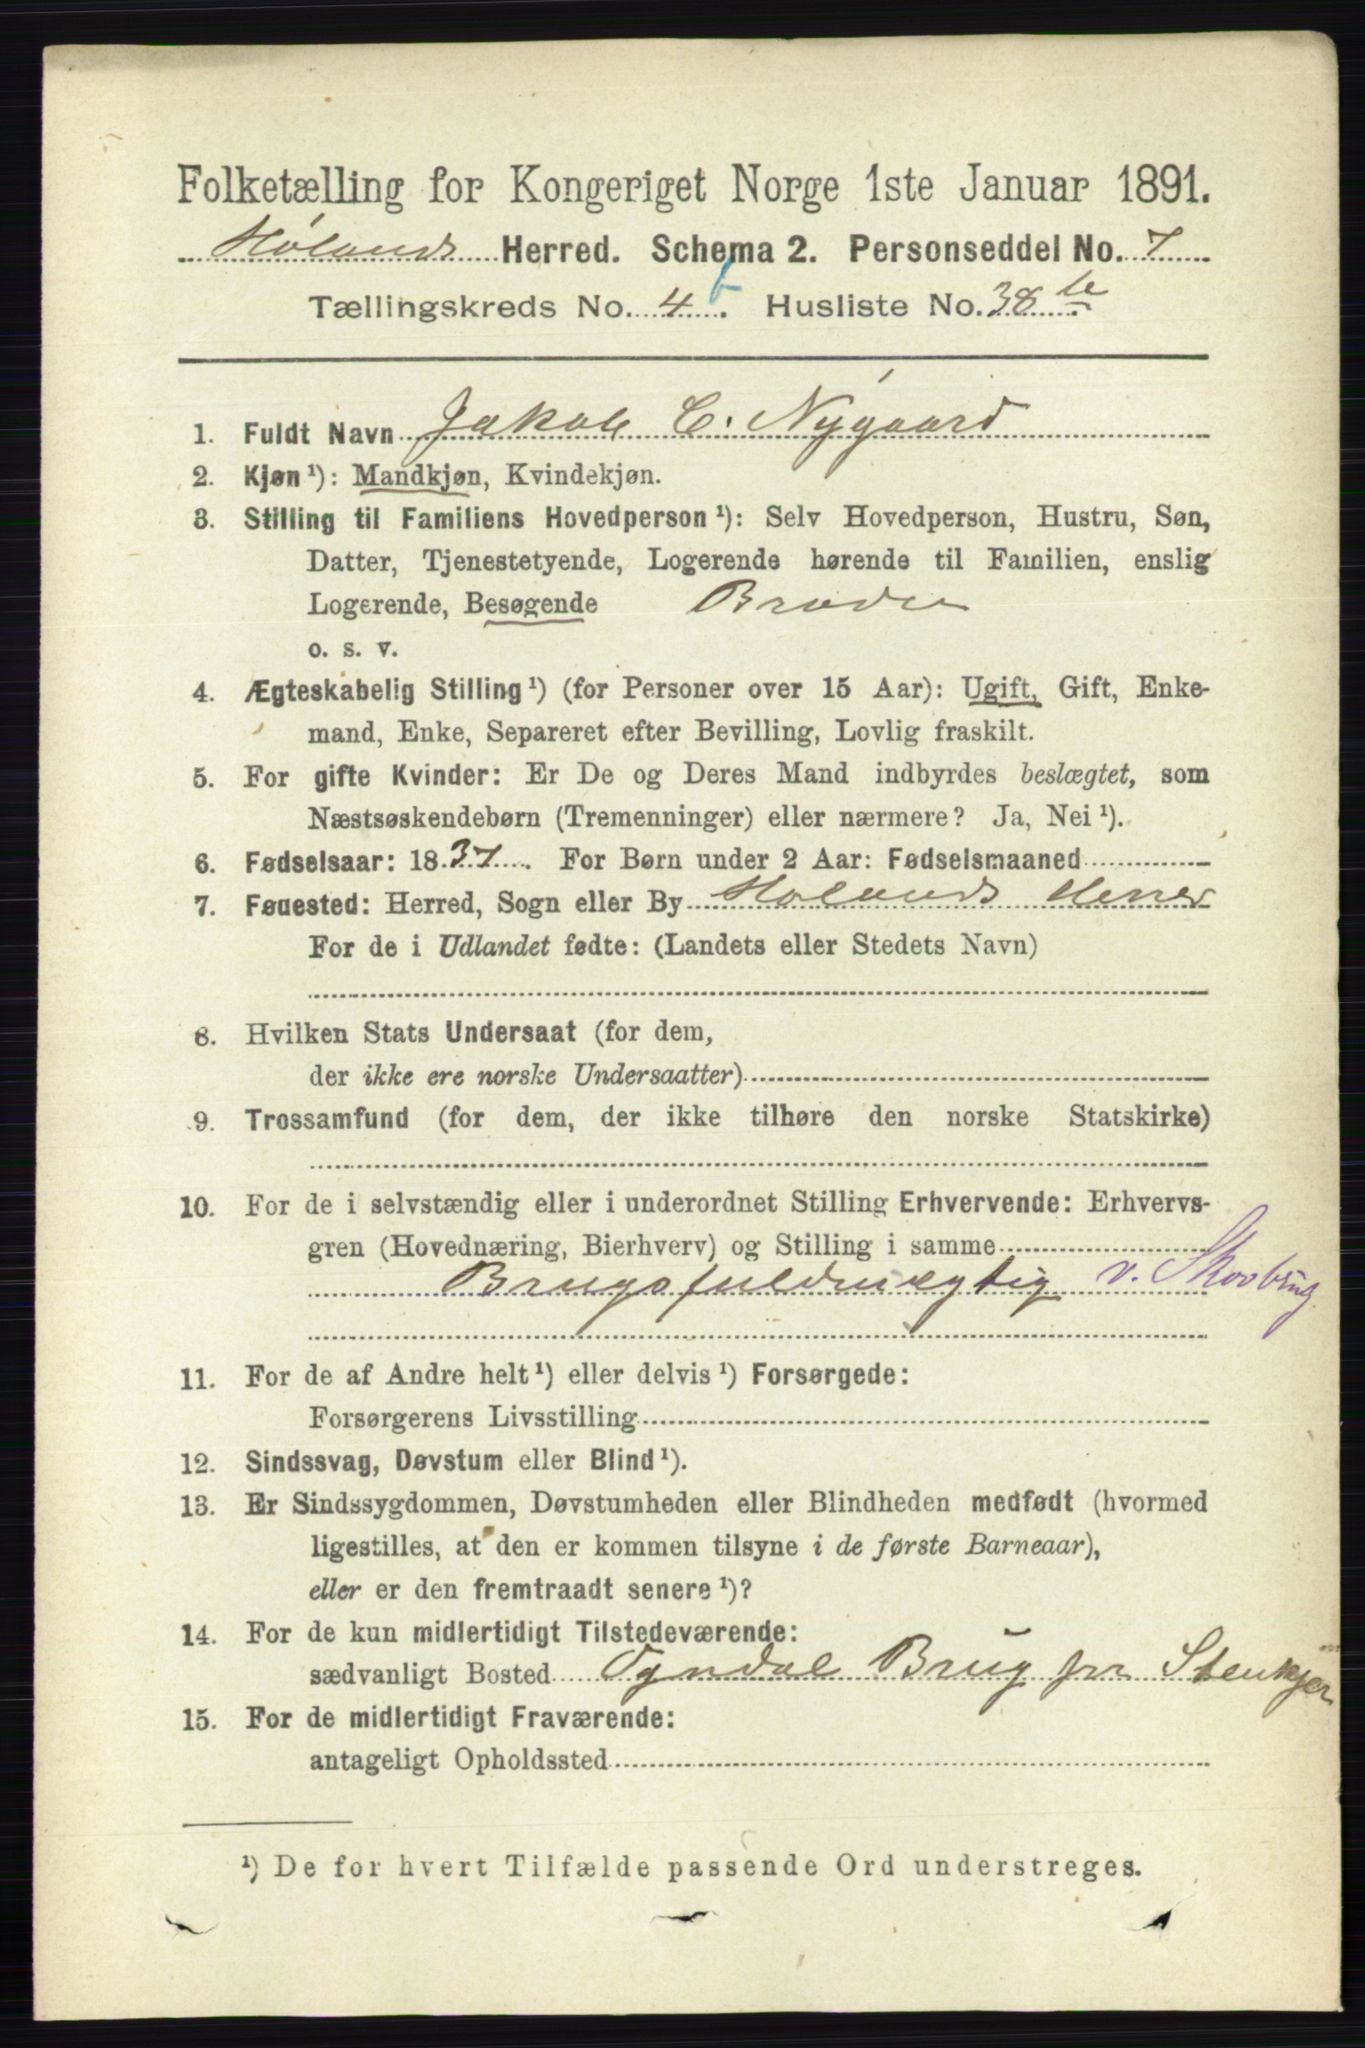 Folketælling for Kongeriget Norge 1ste Januar 1891.
Hølands Herred. Schema 2. Personseddel No. 7
Tællingskreds No. 4 b. Husliste No. 38 b
1. Fuldt Navn Jakob C. Nygaard
2. Kjøn ¹): Mandkjøn, Kvindekjøn.
3. Stilling til Familiens Hovedperson ¹): Selv Hovedperson, Hustru, Søn,
Datter, Tjenestetyende, Logerende hørende til Familien, enslig
Logerende, Besøgende Broder
o. s. v.
4. Ægteskabelig Stilling ¹) (for Personer over 15 Aar): Ugift, Gift, Enke-
mand, Enke, Separeret efter Bevilling, Lovlig fraskilt.
5. For gifte Kvinder: Er De og Deres Mand indbyrdes beslægtet, som
Næstsøskendebørn (Tremenninger) eller nærmere? Ja, Nei ¹).
6. Fødselsaar: 1837. For Børn under 2 Aar: Fødselsmaaned
7. Føuested: Herred, Sogn eller By Hølands Herred
For de i Udlandet fødte: (Landets eller Stedets Navn)
8. Hvilken Stats Undersaat (for dem,
der ikke ere norske Undersaatter)
9. Trossamfund (for dem, der ikke tilhøre den norske Statskirke)
10. For de i selvstændig eller i underordnet Stilling Erhvervende: Erhvervs-
gren (Hovednæring, Bierhverv) og Stilling i samme
Brugsfuldmægtig v. Skovbrug
11. For de af Andre helt ¹) eller delvis ¹) Forsørgede:
Forsørgerens Livsstilling
12. Sindssvag, Døvstum eller Blind ¹).
13. Er Sindssygdommen, Døvstumheden eller Blindheden medfødt (hvormed
ligestilles, at den er kommen tilsyne i de første Barneaar),
eller er den fremtraadt senere ¹)?
14. For de kun midlertidigt Tilstedeværende:
sædvanligt Bosted Ogndal Brug pr Stenkjer
15. For de midlertidigt Fraværende:
antageligt Opholdssted
¹) De for hvert Tilfælde passende Ord understreges.